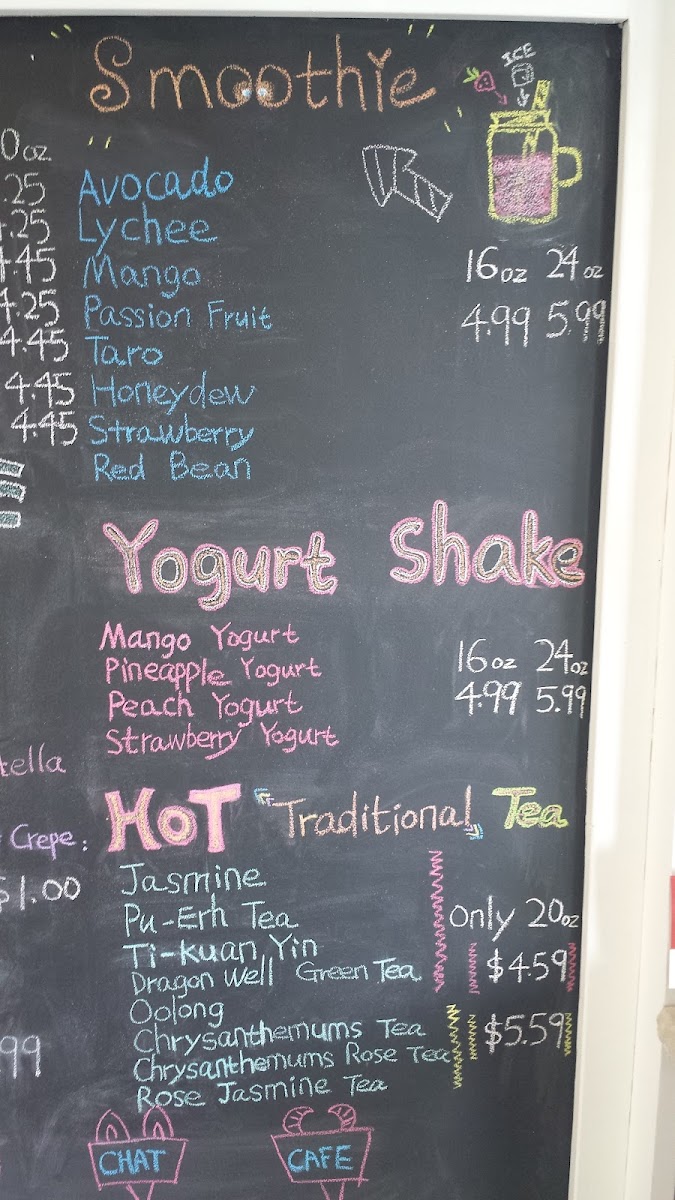 Smoothie
ICE
0oz
.25
.25
4.45
4.25
4.45
4.45
4.45
Avocado
Lychee
Mango
Passion Fruit
Taro
Honeydew
Strawberry
Red Bean
16oz 24oz
4.99 5.99
Yogurt Shake
Mango Yogurt
Pineapple Yogurt
Peach Yogurt
Strawberry Yogurt
16oz 24oz
4.99 5.99
tella
Crepe:
$1.00
99
HOT "Traditional" Tea
Jasmine
Pu-Erh Tea
Ti-Kuan Yin
Dragon Well Green Tea
Oolong
Chrysanthemums Tea
Chrysanthemums Rose Tea
Rose Jasmine Tea
Only 20oz
$4.59
$5.59
CHAT CAFE